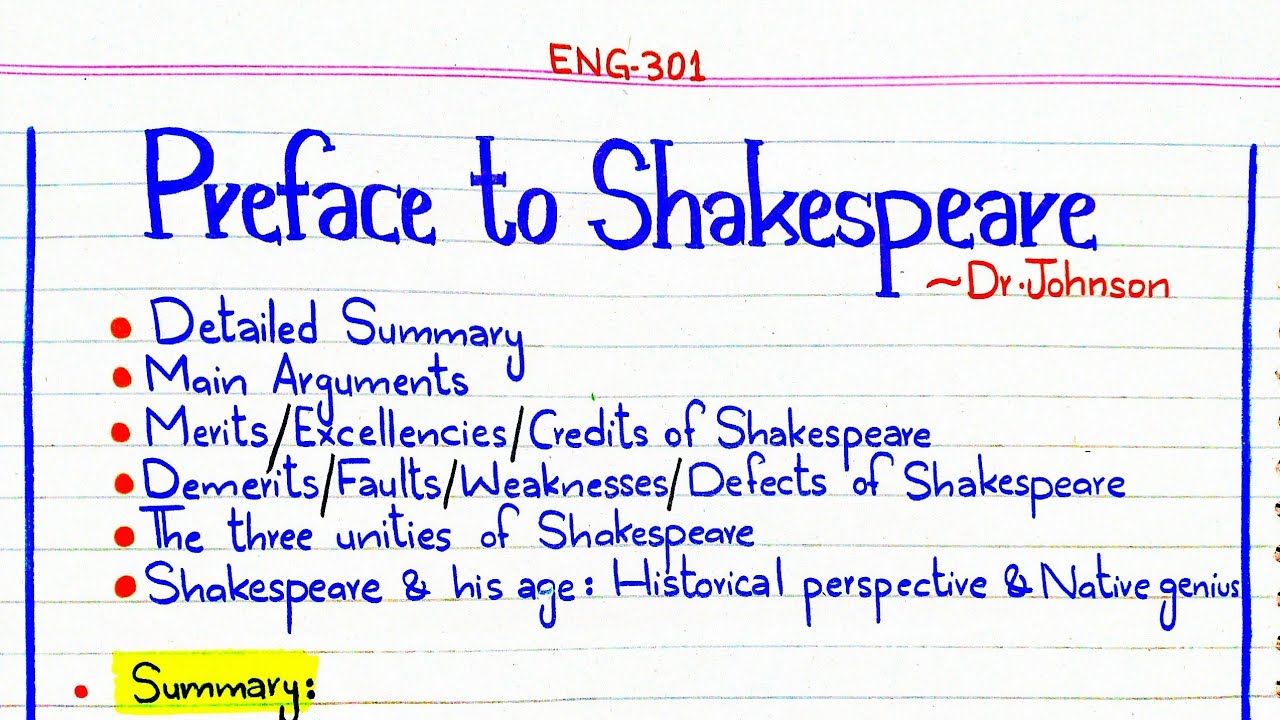 ENG-301
Preface to Shakespeare
~Dr.Johnson
• Detailed Summary
• Main Arguments
• Merits/Excellencies/Credits of Shakespeare
• Demerits/Faults/Weaknesses/Defects of Shakespeare
• The three unities of Shakespeare
• Shakespeare & his age: Historical perspective & Native genius
• Summary: